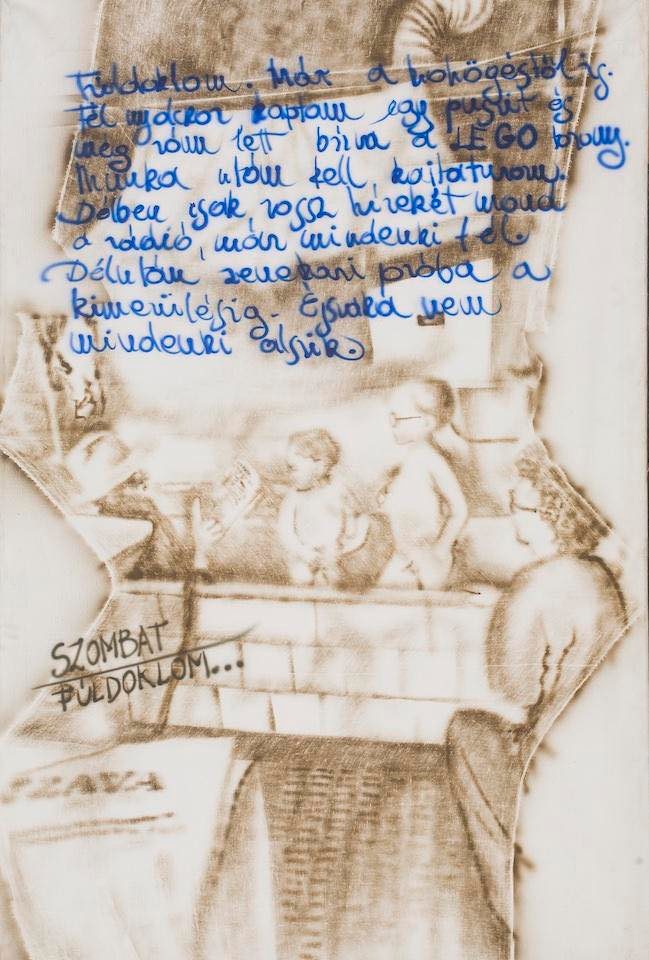 Fuldoklom. Már a köhögéstől is.
Fél nyolckor kaptam egy puszit és
meg rám lett bízva a LEGO torony.
Munka után kell kajtatnom.
Délben csak rossz híreket mond
a rádió, már mindenki fél.
Délután zenekari próba a
kimerülésig. Éjszaka nem
mindenki alszik.
SZOMBAT
FULDOKLOM...